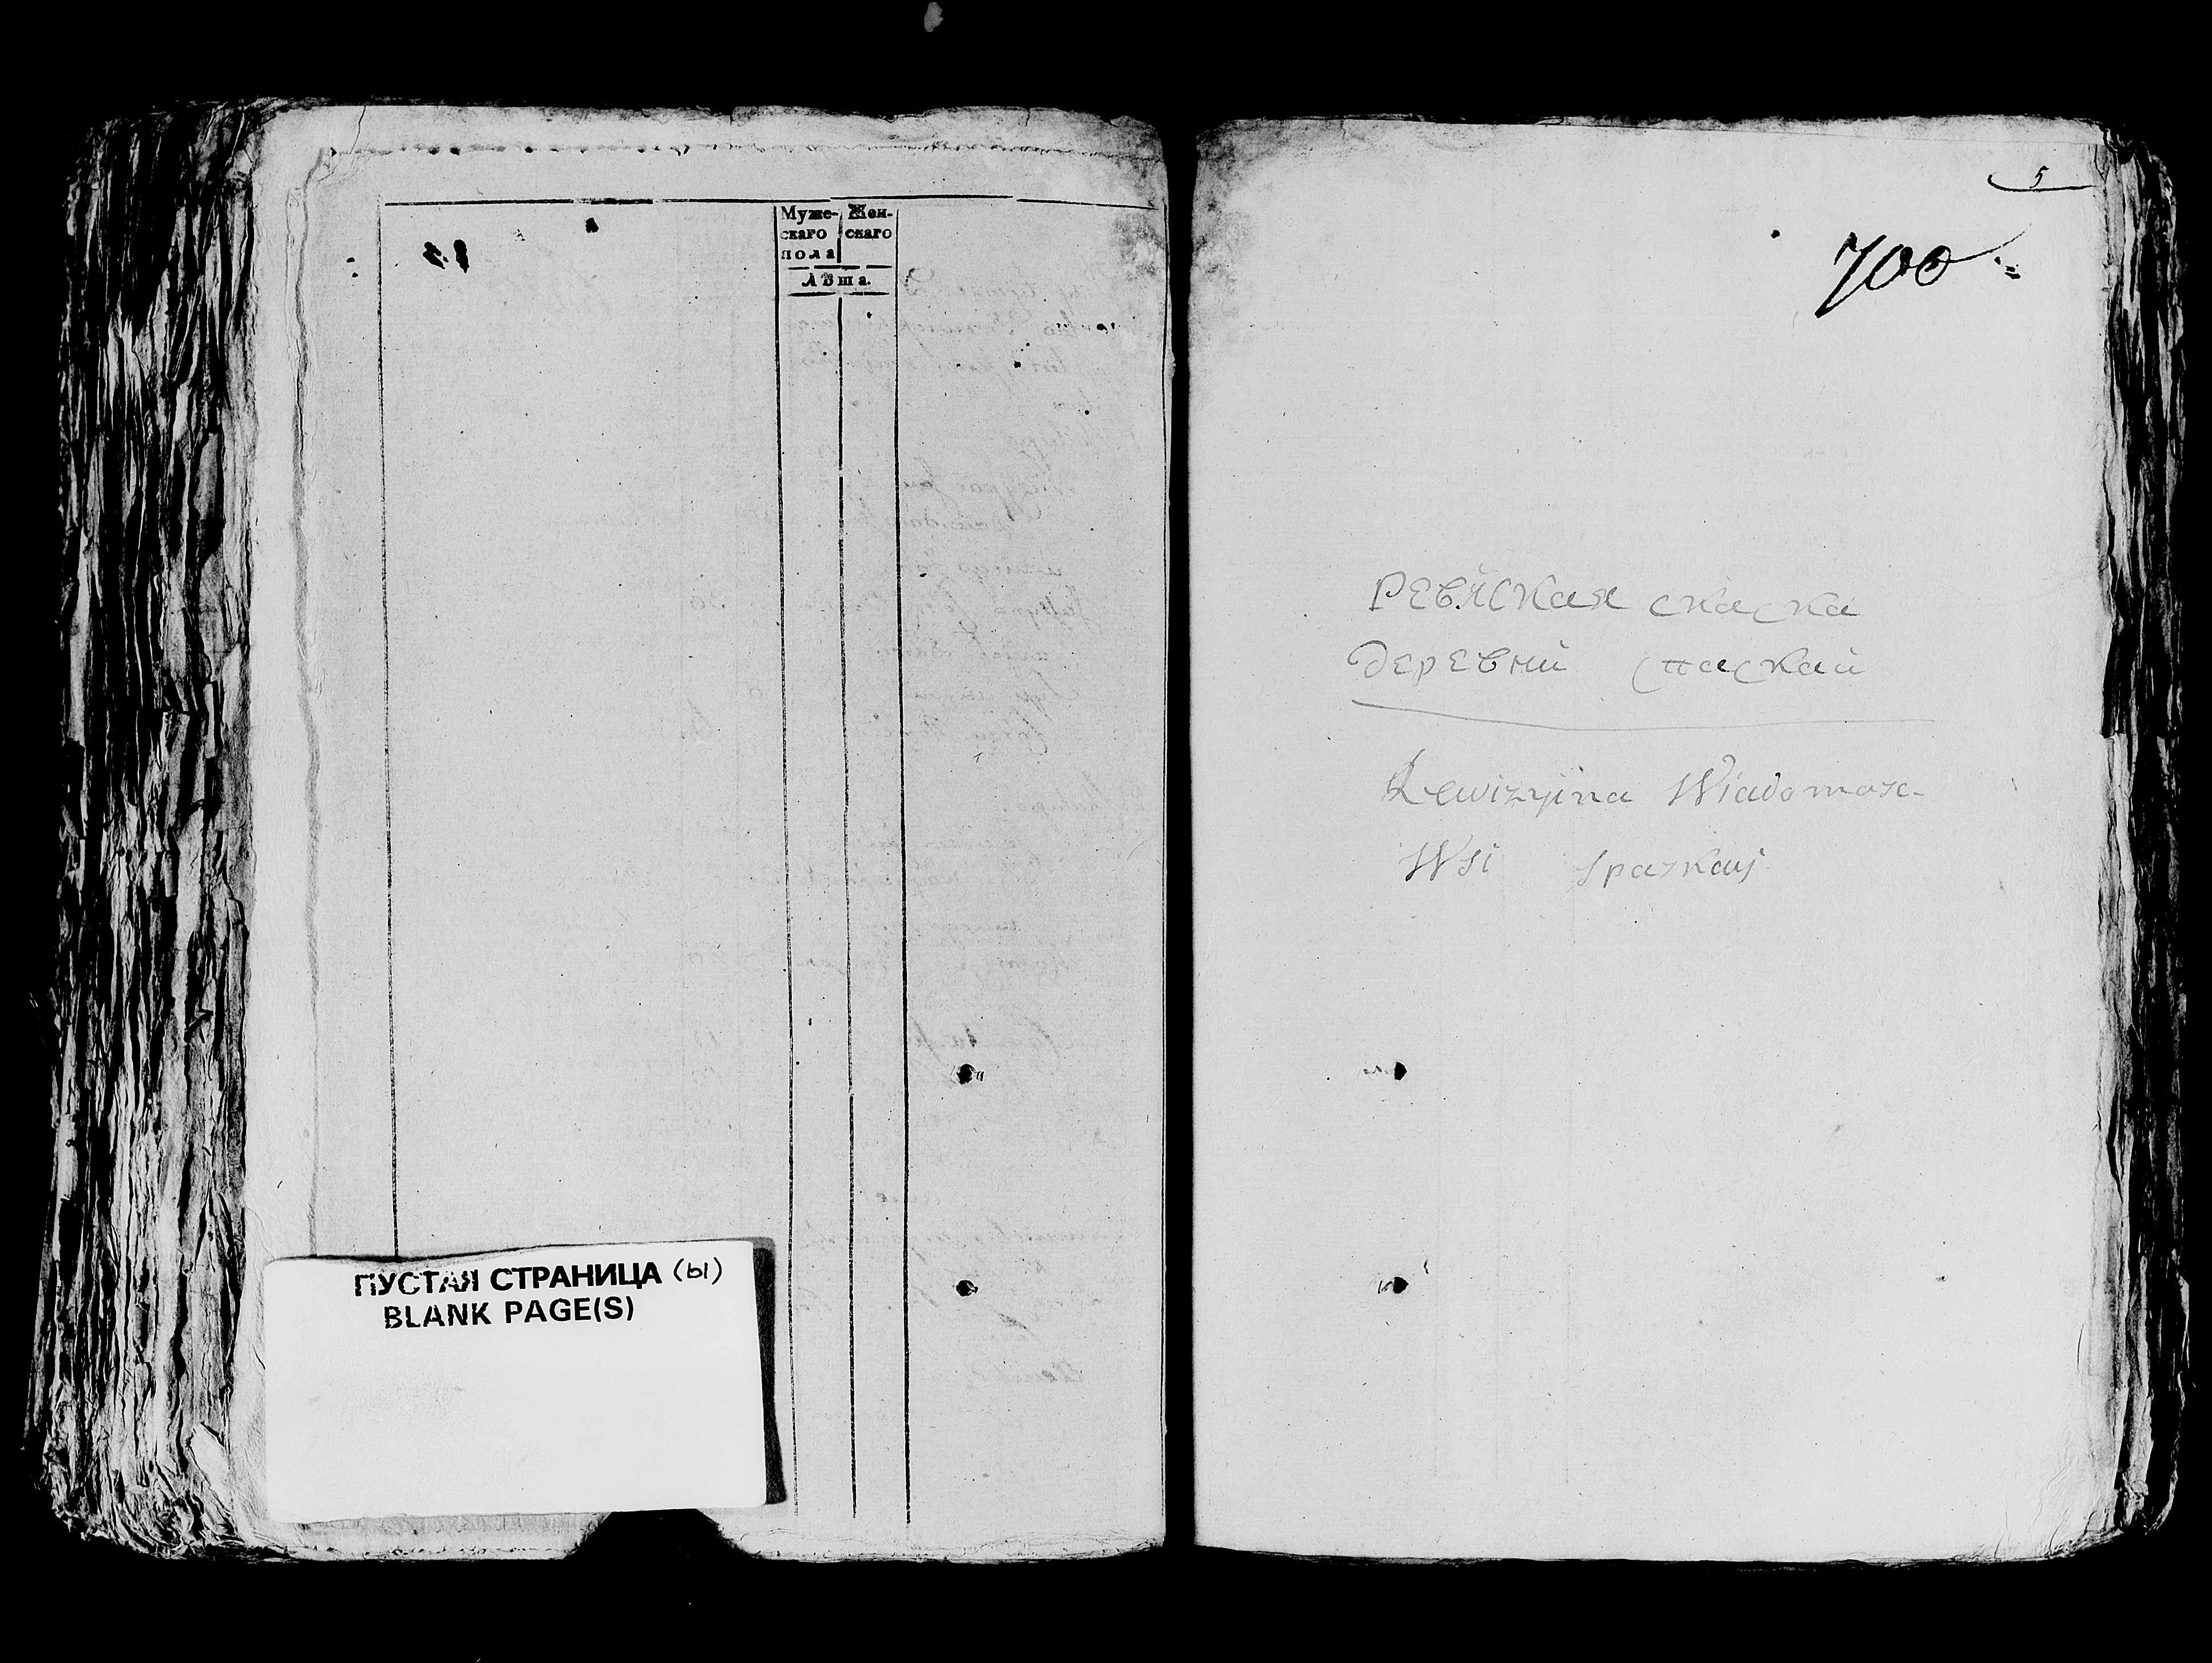 Муже- Жен-
скаго скаго
пола
Лѣта.
ПУСТАЯ СТРАНИЦА (ы)
BLANK PAGE(S)
5
700
РЕВИСКая скаска
ДЕРЕвни Спаскай
Rewizyina Wiadomosc
Wsi Spaskaij